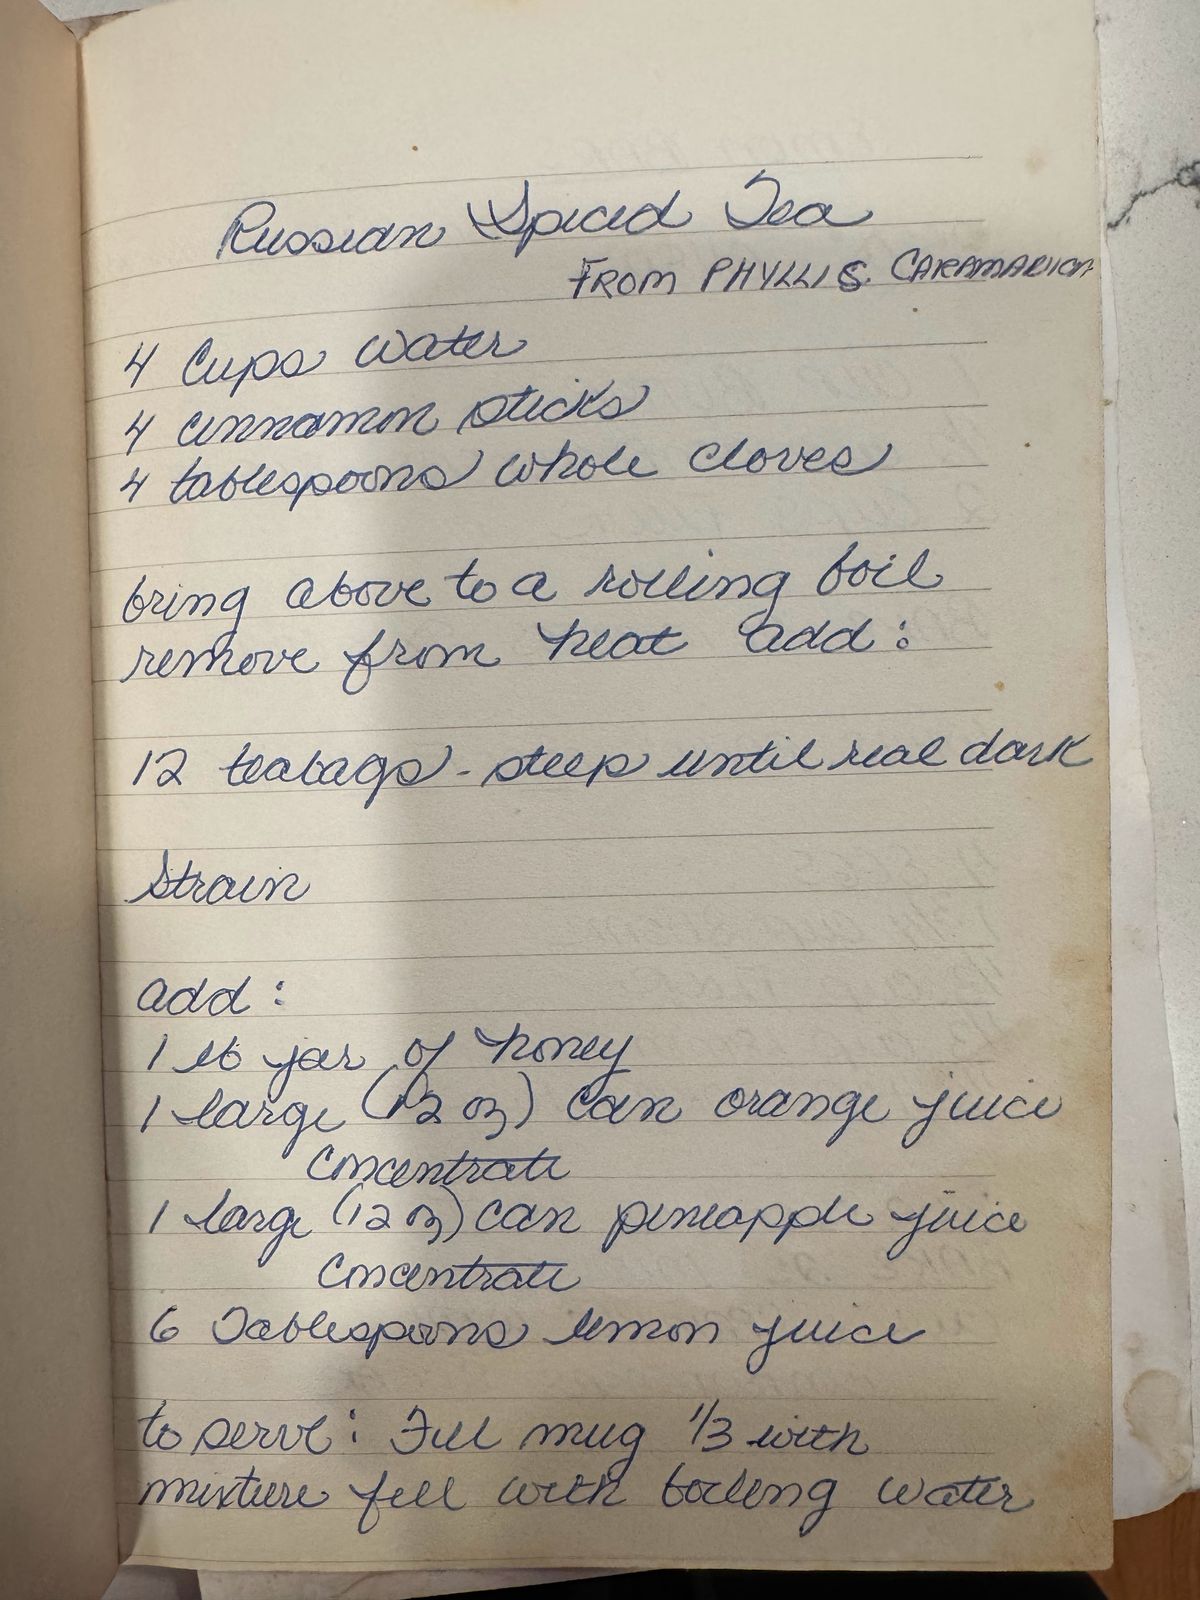 Russian Spiced Tea
FROM PHYLLIS CARAMARICA
4 Cups water
4 cinnamon sticks
4 tablespoons whole cloves
bring above to a rolling boil
remove from heat add:
12 teabags - steep until real dark
Strain
add:
1 lb jar of honey
1 large (12 oz) can orange juice
concentrate
1 large (12 oz) can pineapple juice
concentrate
6 Tablespoons lemon juice
to serve: Fill mug 1/3 with
mixture fill with boiling water